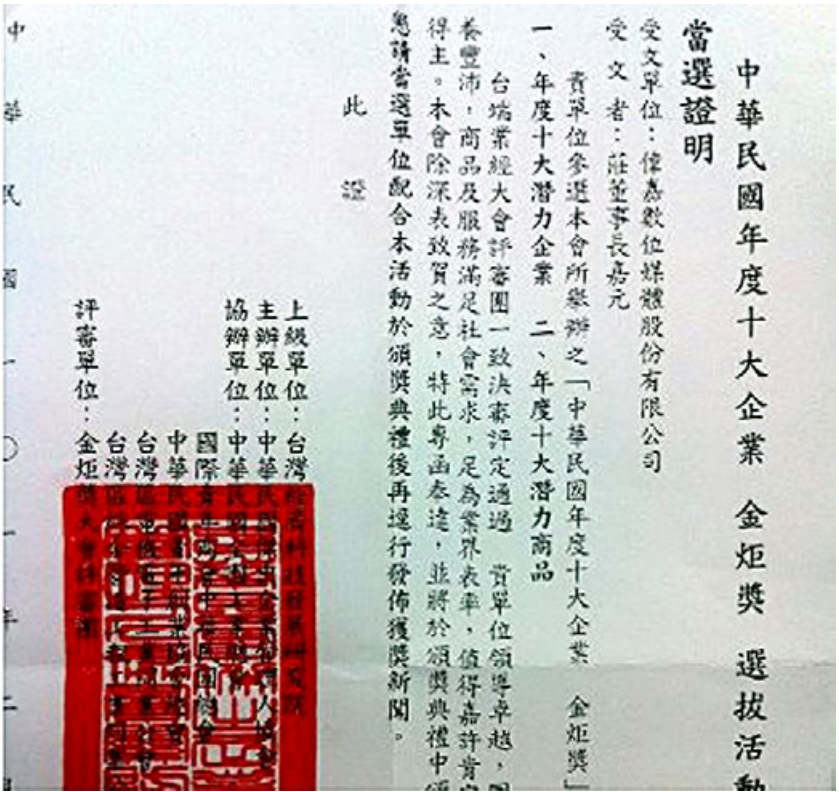 中華民國年度十大企業 金炬獎 選拔活動
當選證明
受文單位：偉嘉數位媒體股份有限公司
受文者：莊董事長嘉元
貴單位參選本會所舉辦之「中華民國年度十大企業 金炬獎」
一、年度十大潛力企業 二、年度十大潛力商品
台端業經大會評審團一致決審評定通過 貴單位領導卓越，
養豐沛，商品及服務滿足社會需求，足為業界表率，值得嘉許肯定
得主。本會除深表致賀之意，特此專函奉達，並將於頒獎典禮中頒
懇請當選單位配合本活動於頒獎典禮後再進行發佈獲獎新聞。
此證
上級單位：台灣
主辦單位：中華民國傑出企業管理人協會
協辦單位：中華民國
國際青年商會中華民國總會
中華民國
台灣區電機電子工業同業公會
台灣區
評審單位：金炬獎大會評審團
中華民國一〇一年二月